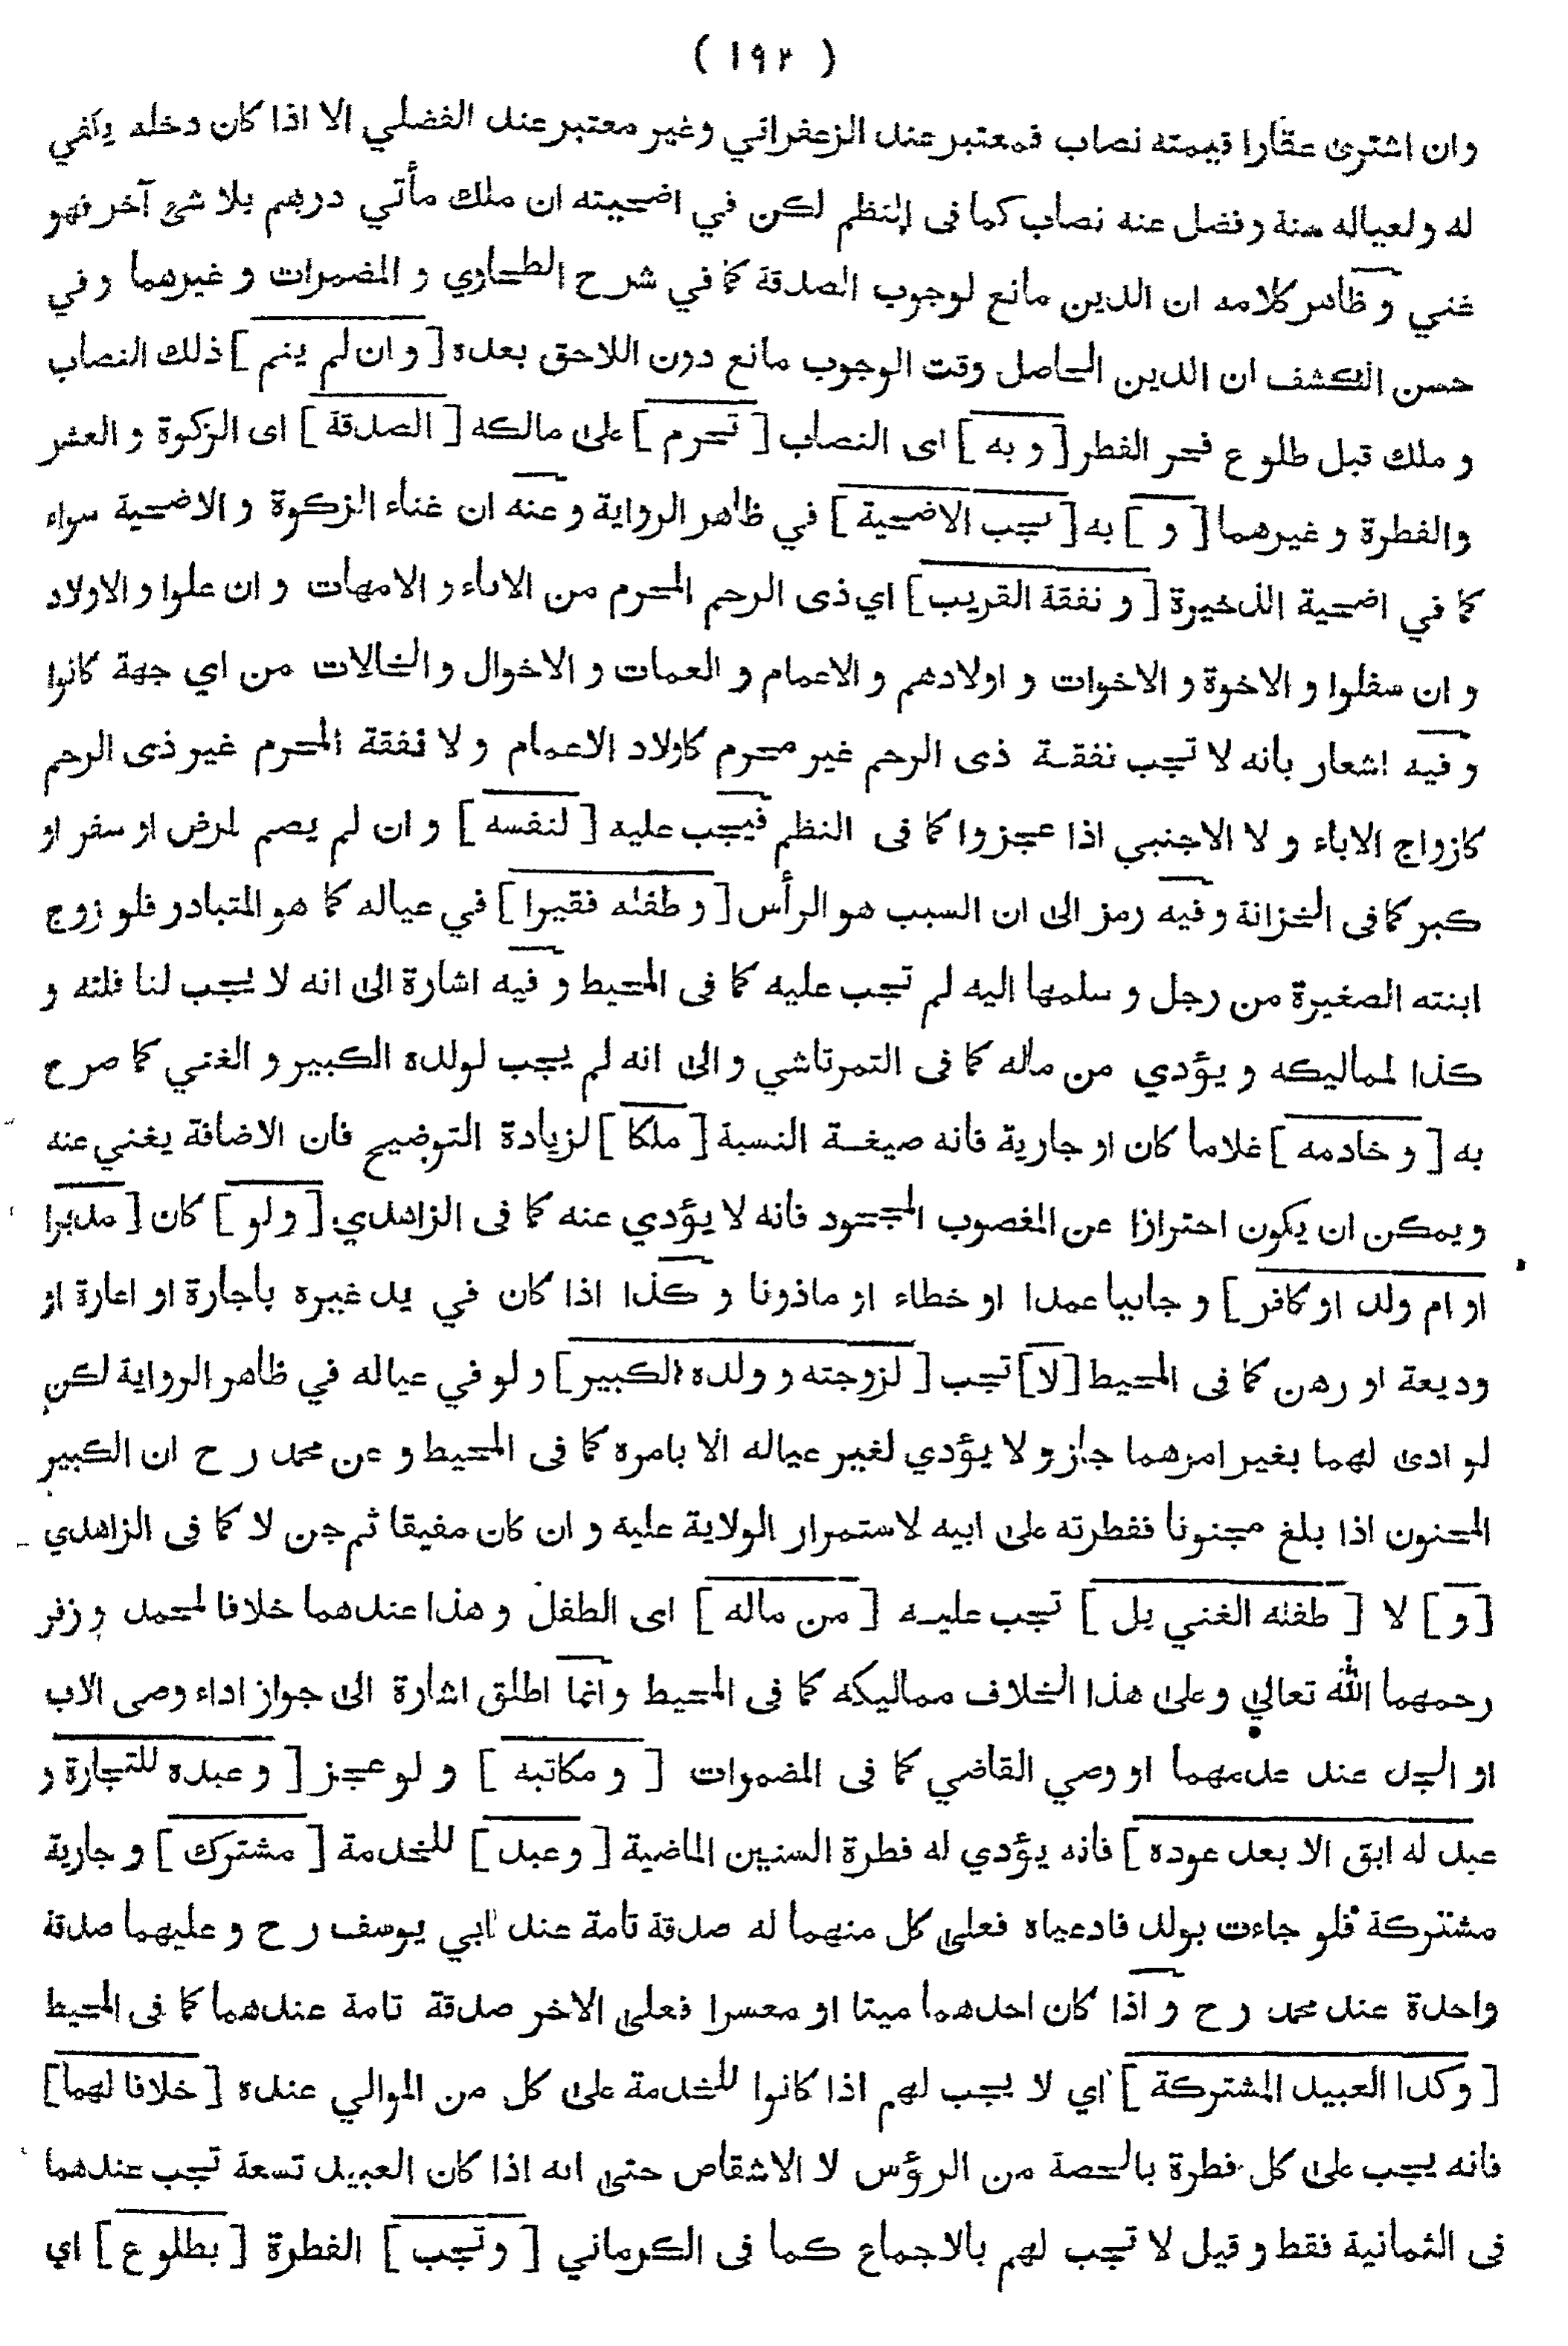 ( ١٩٢ )
وان اشترى عقارا قيمته نصاب فمعتبر عند الزعفراني وغير معتبر عند الفضلي الا اذا كان دخله يكفي
له ولعياله سنة وفضل عنه نصاب كما فى النظم لكن في اضحيته ان ملك مأتي درهم بلا شئ آخر فهو
غني و ظاهر كلامه ان الدين مانع لوجوب الصدقة كما في شرح الطحاوي و المضمرات و غيرهما و في
حسن الكشف ان الدين الحاصل وقت الوجوب مانع دون اللاحق بعده [ و ان لم ينم ] ذلك النصاب
و ملك قبل طلوع فجر الفطر [ و به ] اى النصاب [ تحرم ] على مالكه [ الصدقة ] اى الزكوة و العشر
والفطرة و غيرهما [ و ] به [ تجب الاضحية ] في ظاهر الرواية و عنه ان غناء الزكوة و الاضحية سواء
كما في اضحية الذخيرة [ و نفقة القريب ] اي ذى الرحم المحرم من الاباء و الامهات و ان علوا و الاولاد
و ان سفلوا و الاخوة و الاخوات و اولادهم و الاعمام و العمات و الاخوال و الخالات من اي جهة كانوا
و فيه اشعار بأنه لا تجب نفقة ذى الرحم غير محرم كاولاد الاعمام و لا نفقة المحرم غير ذى الرحم
كازواج الاباء و لا الاجنبي اذا عجزوا كما فى النظم فيجب عليه [ لنفسه ] و ان لم يصم لمرض او سفر او
كبر كما فى الخزانة و فيه رمز الى ان السبب هو الرأس [ و طفله فقيرا ] في عياله كما هو المتبادر فلو زوج
ابنته الصغيرة من رجل و سلمها اليه لم تجب عليه كما فى المحيط و فيه اشارة الى انه لا يجب لنافلته و
كذا لمماليكه و يؤدي من ماله كما فى التمرتاشي و الى انه لم يجب لولده الكبير و الغني كما صرح
به [ و خادمه ] غلاما كان او جارية فانه صيغة النسبة [ ملكا ] لزيادة التوضيح فان الاضافة يغني عنه
و يمكن ان يكون احترازا عن المغصوب المجحود فانه لا يؤدي عنه كما فى الزاهدي [ و لو ] كان [ مدبرا
او ام ولد او كافر ] و جانيا عمدا او خطاء او ماذونا و كذا اذا كان في يد غيره باجارة او اعارة او
وديعة او رهن كما فى المحيط [ لا ] تجب [ لزوجته و ولده الكبير ] و لو في عياله في ظاهر الرواية لكن
لو ادى لهما بغير امرهما جاز و لا يؤدي لغير عياله الا بامره كما فى المحيط و عن محمد ر ح ان الكبير
المجنون اذا بلغ مجنونا ففطرته على ابيه لاستمرار الولاية عليه و ان كان مفيقا ثم جن لا كما فى الزاهدي
[ و ] لا [ طفله الغني بل ] تجب عليه [ من ماله ] اى الطفل و هذا عندهما خلافا لمحمد و زفر
رحمهما الله تعالي و على هذا الخلاف مماليكه كما فى المحيط و انما اطلق اشارة الى جواز اداء وصى الاب
او الجد عند عدمهما او وصي القاضي كما فى المضمرات [ و مكاتبه ] و لو عجز [ و عبده للتجارة و
عبد له ابق الا بعد عوده ] فانه يؤدي له فطرة السنين الماضية [ و عبد ] للخدمة [ مشترك ] و جارية
مشتركة فلو جاءت بولد فادعياه فعلى كل منهما له صدقة تامة عند ابي يوسف ر ح و عليهما صدقة
واحدة عند محمد ر ح و اذا كان احدهما ميتا او معسرا فعلى الاخر صدقة تامة عندهما كما فى المحيط
[ و كذا العبيد المشتركة ] اي لا يجب لهم اذا كانوا للخدمة على كل من الموالي عنده [ خلافا لهما ]
فانه يجب على كل فطرة بالحصة من الرؤس لا الاشقاص حتى انه اذا كان العبيد تسعة تجب عندهما
فى الثمانية فقط و قيل لا تجب لهم بالاجماع كما فى الكرماني [ و تجب ] الفطرة [ بطلوع ] اي